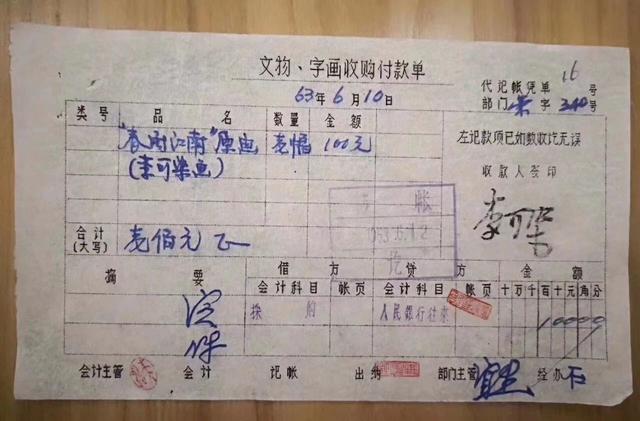 文物、字画收购付款单
代记帐凭单 16 号
63年6月10日
部门 荣 字 240 号
类号 品名 数量 金额
"春雨江南"原画 壹幅 100元
(李可染画)
左记款项已如数收讫无误
收款人签印
李可染
合计(大写) 壹佰元正
帐
讫
摘要 借方 贷方 金额
会计科目 帐页 会计科目 帐页 十万千百十元角分
采购 人民银行往来 10000
会计主管 会计 记帐 出纳 部门主管 经办